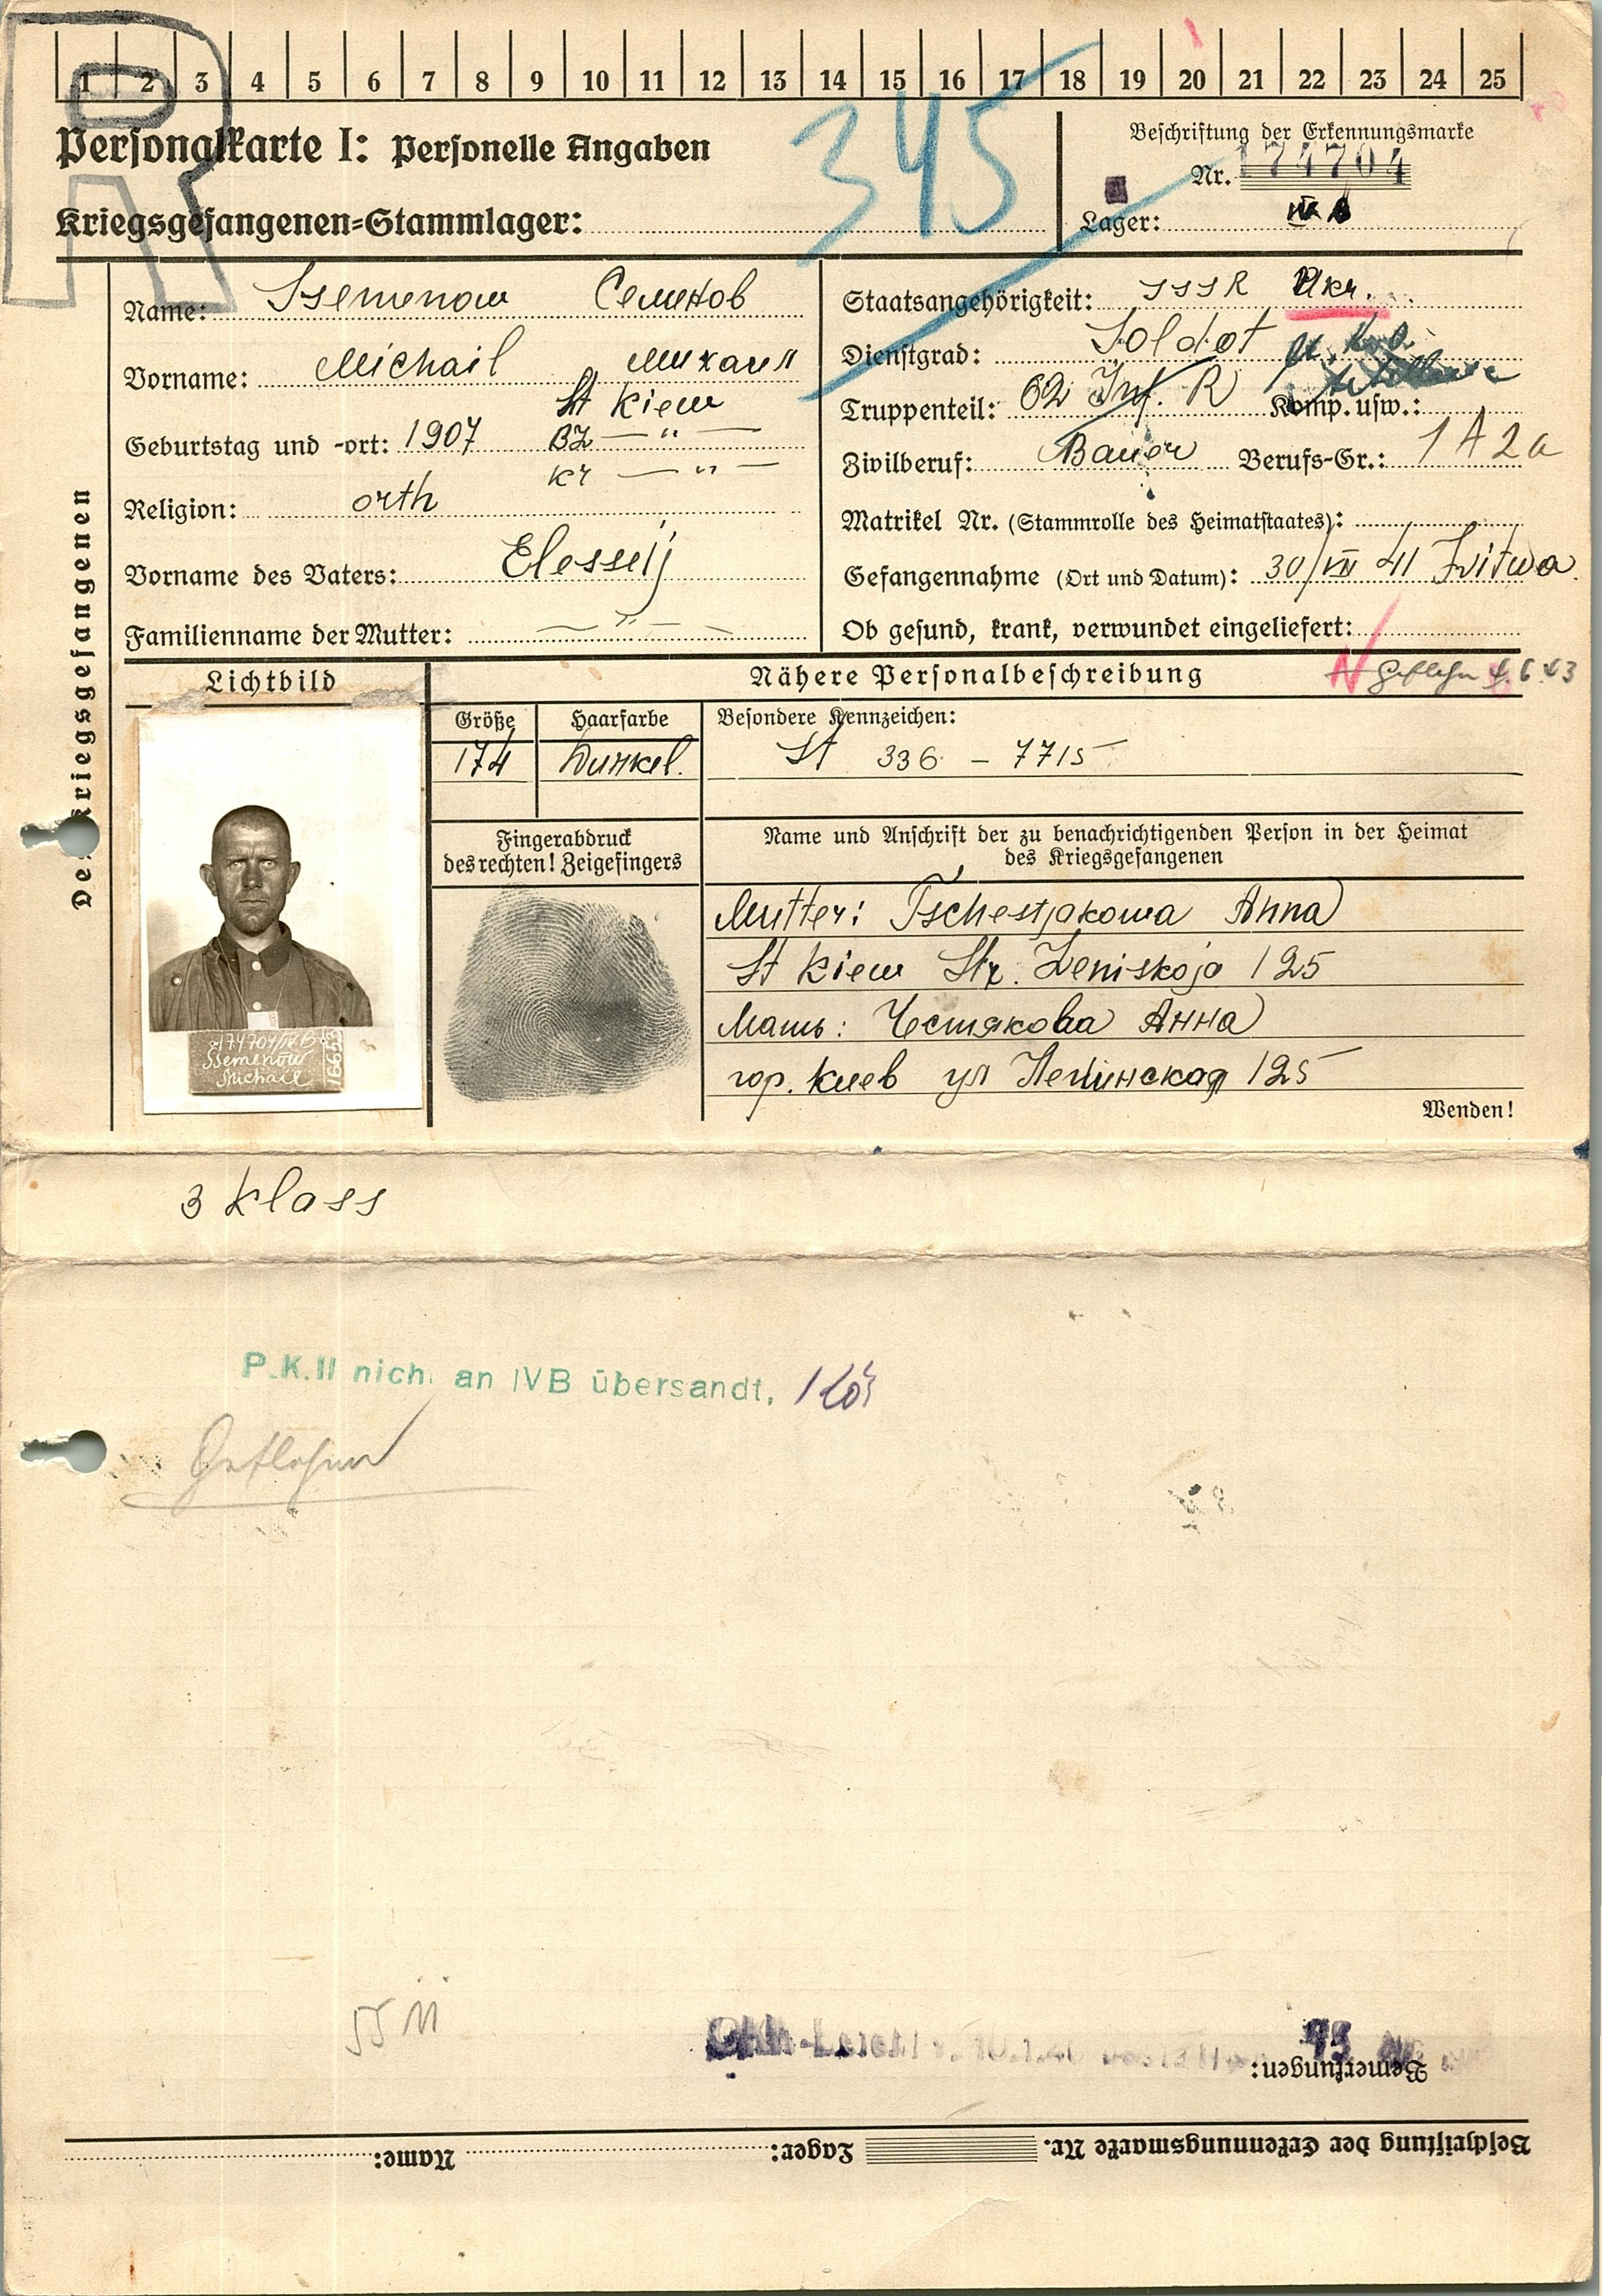 1 2 3 4 5 6 7 8 9 10 11 12 13 14 15 16 17 18 19 20 21 22 23 24 25
Personalkarte I: Personelle Angaben
345
Beschriftung der Erkennungsmarke
Nr. 174704
Kriegsgefangenen-Stammlager:
Lager: IV B
Des Kriegsgefangenen
Name: Ssemenow Семенов
Vorname: Michail Михаил
St Kiew
Geburtstag und -ort: 1907 BZ — " —
Kr — " —
Religion: orth
Vorname des Vaters: Elesseij
Familienname der Mutter: — " —
Staatsangehörigkeit: SSSR Ukr.
Dienstgrad: Soldat
Truppenteil: 62 Inf. R Komp. usw.:
Zivilberuf: Bauer Berufs-Gr.: 1 A 2a
Matrikel Nr. (Stammrolle des Heimatstaates):
Gefangennahme (Ort und Datum): 30/VII 41
Ob gesund, krank, verwundet eingeliefert:
Lichtbild
Nähere Personalbeschreibung
Geflohen 4.6.43
Größe Haarfarbe Besondere Kennzeichen:
174 Dunkel. St 336 - 7715
Fingerabdruck
des rechten! Zeigefingers
Name und Anschrift der zu benachrichtigenden Person in der Heimat
des Kriegsgefangenen
174704/IVB
Ssemenow
Michail
Mutter: Tschestjakowa Anna
St Kiew Str. Leniskoja 125
Мать: Честякова Анна
гор. Киев ул Ленинская 125
Wenden!
3 Klass
P.K.II nich an IVB übersandt.
Geflohen
Bemerkungen:
Beschriftung der Erkennungsmarke Nr. Lager: Name: